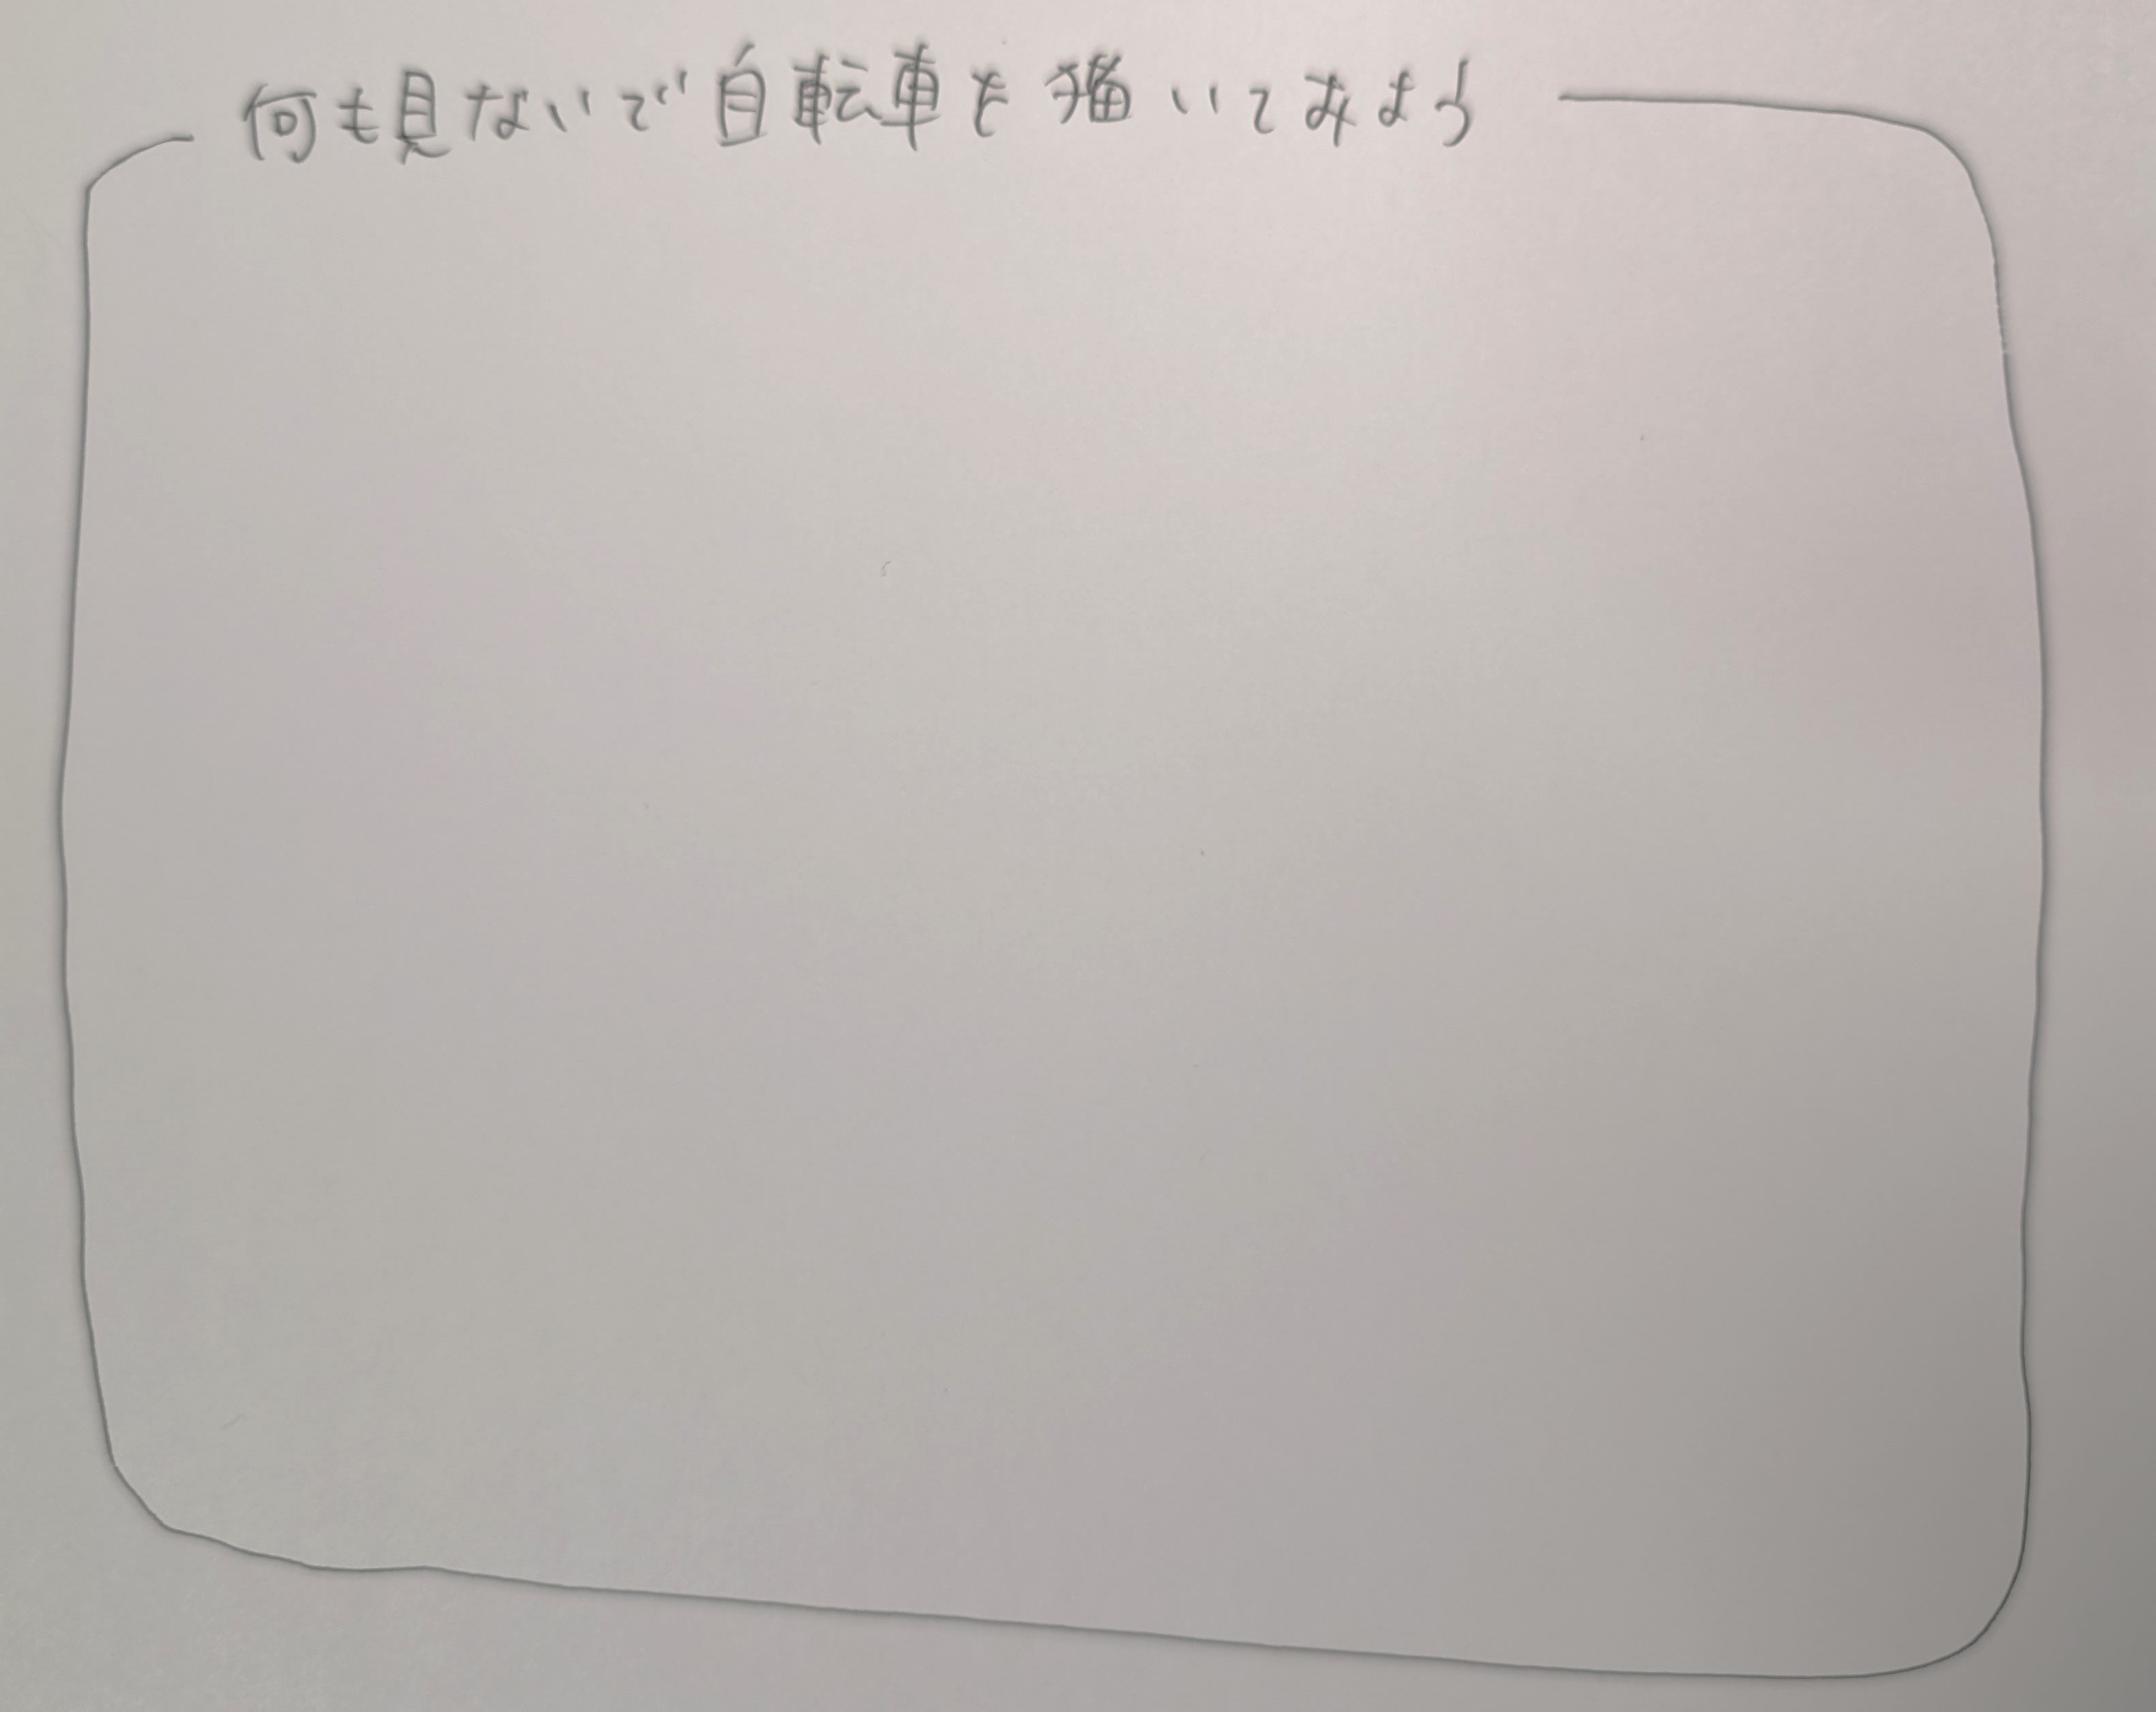 何も見ないで自転車を描いてみよう